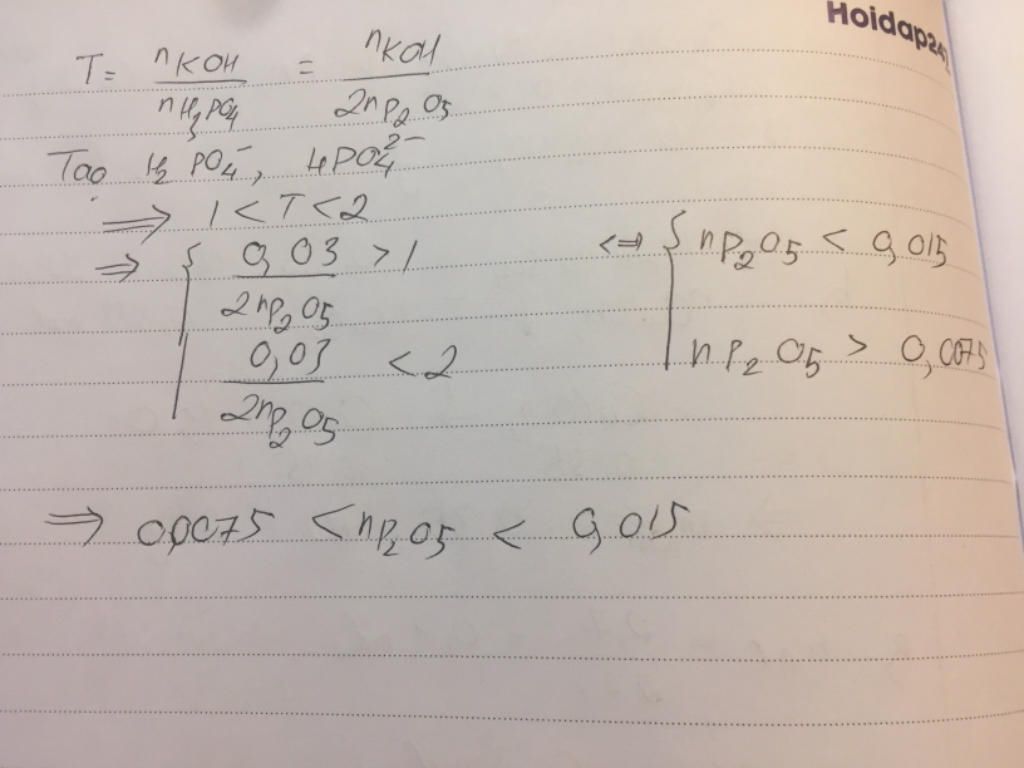 Hoidap247
T = nKOH / nH3PO4 = nKOH / 2nP2O5
Tạo H2PO4^-, HPO4^2-
=> 1 < T < 2
=> { 0,03 / 2nP2O5 > 1 <=> { nP2O5 < 0,015
0,03 / 2nP2O5 < 2 nP2O5 > 0,0075
=> 0,0075 < nP2O5 < 0,015